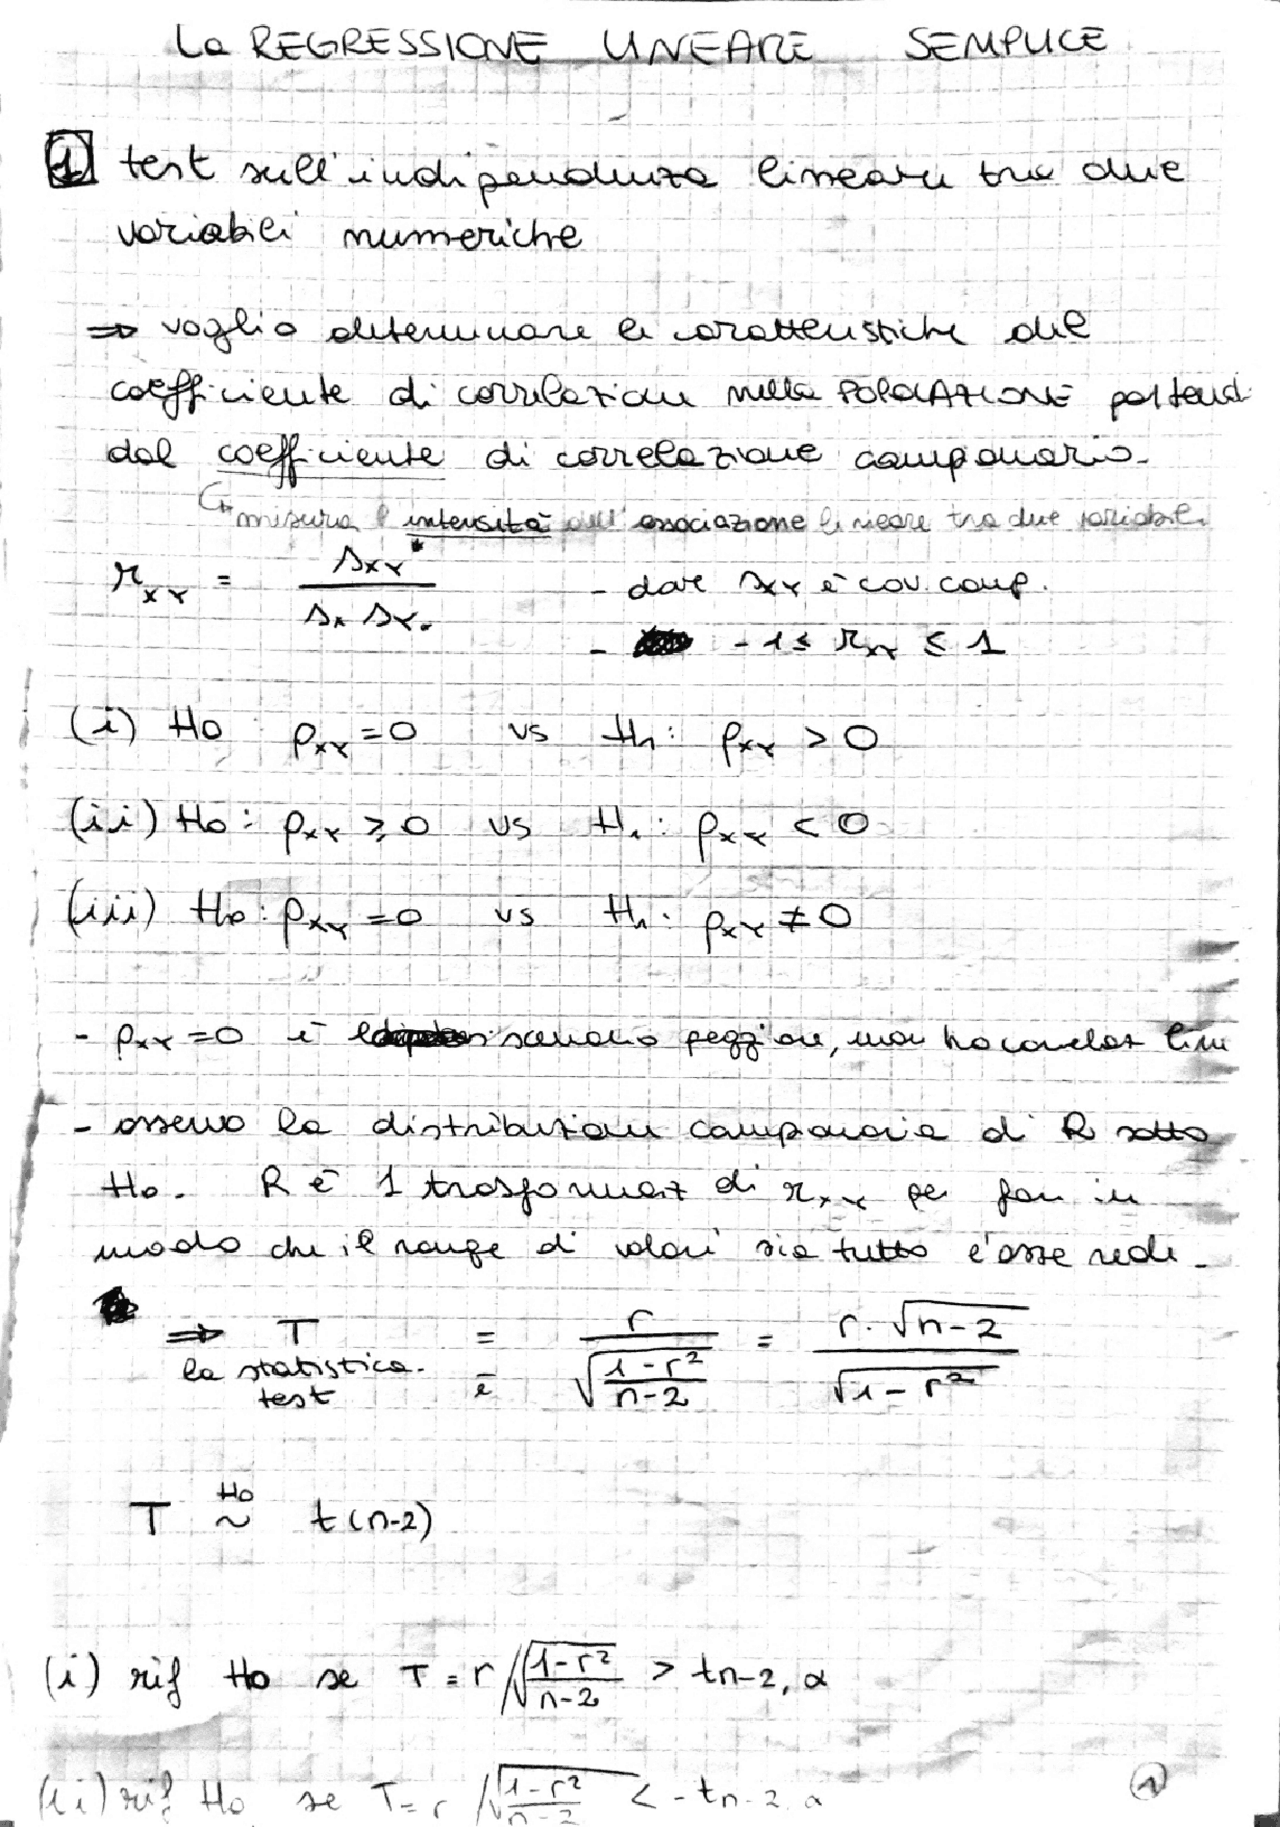 La REGRESSIONE LINEARE SEMPLICE
1 test sull'indipendenza lineare tra due
variabili numeriche
⇒ voglio determinare le caratteristiche del
coefficiente di correlazione nella POPOLAZIONE partend
dal coefficiente di correlazione campionario.
↳ misura l'intensità dell'associazione lineare tra due variabili
r_xy = s_xy / s_x s_y. - dove s_xy è cov. camp.
- -1 ≤ r_xy ≤ 1
(i) H0 ρ_xy = 0 vs H1: ρ_xy > 0
(ii) H0: ρ_xy ≥ 0 vs H1: ρ_xy < 0
(iii) H0: ρ_xy = 0 vs H1: ρ_xy ≠ 0
- ρ_xy = 0 è scenario peggiore, non ho correlaz line
- osservo la distribuzione campionaria di R sotto
H0. R è 1 trasformaz di r_xy per fare in
modo che il range di valori sia tutto l'asse reale.
⇒ T = r / √((1-r²)/(n-2)) = r·√(n-2) / √(1-r²)
la statistica è
test
T ~ᴴ⁰ t(n-2)
(i) rif H0 se T = r/√((1-r²)/(n-2)) > tn-2, α
(ii) rif H0 se T = r/√((1-r²)/(n-2)) < -tn-2, α
1